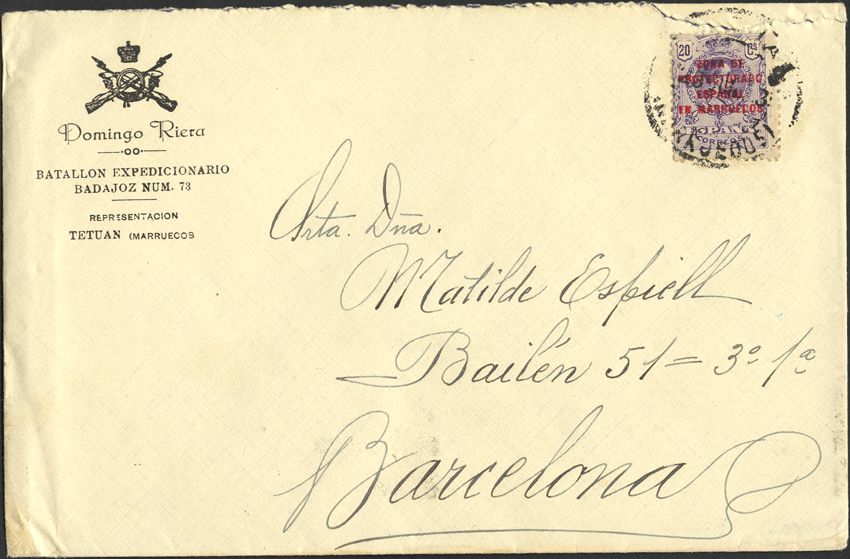 Domingo Riera
BATALLON EXPEDICIONARIO
BADAJOZ NUM. 73
REPRESENTACION
TETUAN (MARRUECOS
20 Cs
ZONA DE
PROTECTORADO
ESPAÑOL
EN MARRUECOS
CORREOS
Srta. Dña.
Matilde Espiell
Bailén 51 = 3º 1ª
Barcelona